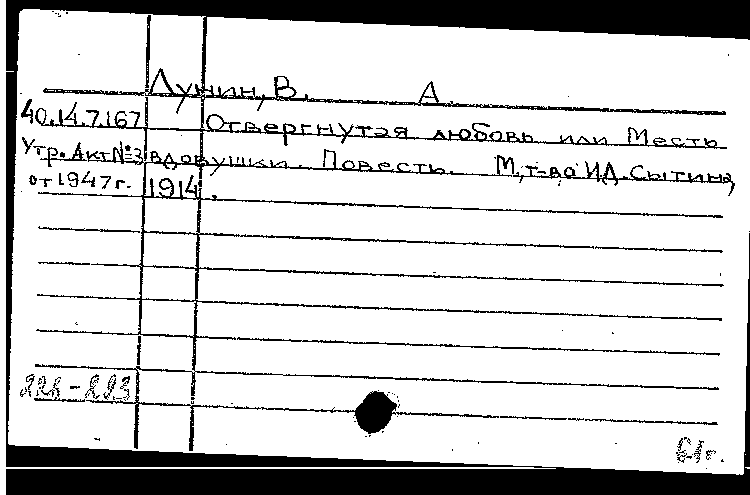 Лунин, В. А.
40.14.7.167 Отвергнутая любовь или Месть
Утр. Акт №3 вдовушки. Повесть. М, т-во И.Д. Сытина,
от 1947г. 1914.
61г.